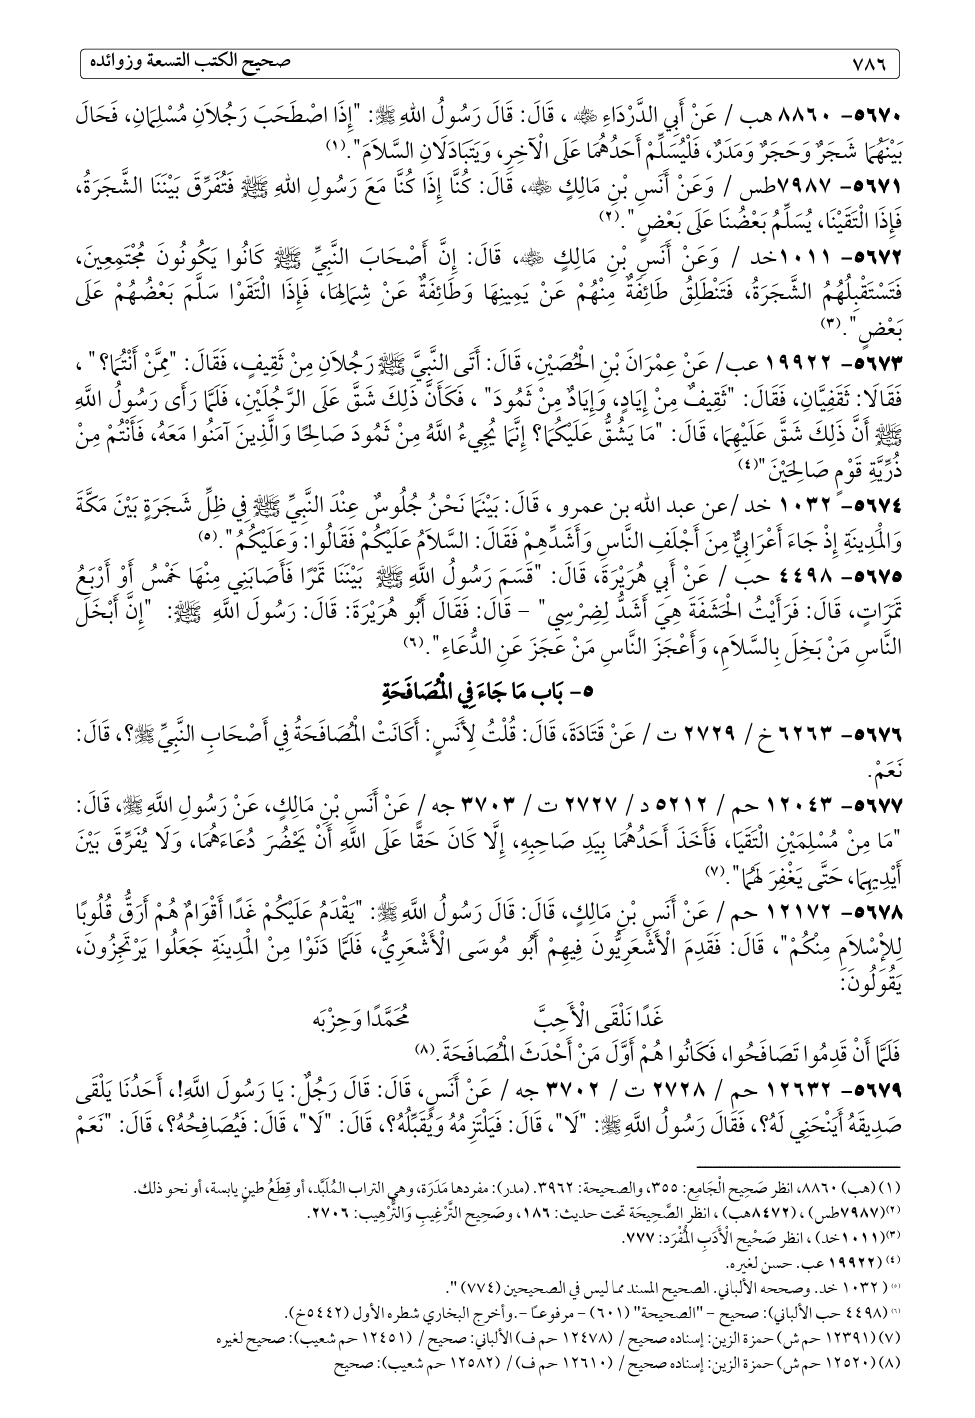 ٧٨٦ صحيح الكتب التسعة وزوائده
٥٦٧٠- ٨٨٦٠ هب / عَنْ أَبِي الدَّرْدَاءِ ﷺ ، قَالَ: قَالَ رَسُولُ اللهِ ﷺ: "إِذَا اصْطَحَبَ رَجُلاَنِ مُسْلِمَانِ، فَحَالَ
بَيْنَهُمَا شَجَرٌ وَحَجَرٌ وَمَدَرٌ، فَلْيُسَلِّمْ أَحَدُهُمَا عَلَى الْآخِرِ، وَيَتَبَادَلَانِ السَّلاَمَ".(١)
٥٦٧١- ٧٩٨٧طس / وَعَنْ أَنَسِ بْنِ مَالِكٍ ، قَالَ: كُنَّا إِذَا كُنَّا مَعَ رَسُولِ اللهِ ﷺ فَتُفَرِّقَ بَيْنَنَا الشَّجَرَةُ،
فَإِذَا الْتَقَيْنَا، يُسَلِّمُ بَعْضُنَا عَلَى بَعْضٍ ".(٢)
٥٦٧٢- ١٠١١خد / وَعَنْ أَنَسِ بْنِ مَالِكٍ ، قَالَ: إِنَّ أَصْحَابَ النَّبِيِّ ﷺ كَانُوا يَكُونُونَ مُجْتَمِعِينَ،
فَتَسْتَقْبِلُهُمُ الشَّجَرَةُ، فَتَنْطَلِقُ طَائِفَةٌ مِنْهُمْ عَنْ يَمِينِهَا وَطَائِفَةٌ عَنْ شِمَالِهَا، فَإِذَا الْتَقَوْا سَلَّمَ بَعْضُهُمْ عَلَى
بَعْضٍ".(٣)
٥٦٧٣- ١٩٩٢٢ عب/ عَنْ عِمْرَانَ بْنِ الْحُصَيْنِ، قَالَ: أَتَى النَّبِيَّ ﷺ رَجُلاَنِ مِنْ ثَقِيفٍ، فَقَالَ: "مِمَّنْ أَنْتُمَا؟" ،
فَقَالَا: ثَقَفِيَّانِ، فَقَالَ: "ثَقِيفٌ مِنْ إِيَادٍ، وَإِيَادٌ مِنْ ثَمُودَ" ، فَكَأَنَّ ذَلِكَ شَقَّ عَلَى الرَّجُلَيْنِ، فَلَمَّا رَأَى رَسُولُ اللهِ
ﷺ أَنَّ ذَلِكَ شَقَّ عَلَيْهِمَا، قَالَ: "مَا يَشُقُّ عَلَيْكُمَا؟ إِنَّمَا يُجِيءُ اللَّهُ مِنْ ثَمُودَ صَالِحًا وَالَّذِينَ آمَنُوا مَعَهُ، فَأَنْتُمْ مِنْ
ذُرِّيَّةِ قَوْمٍ صَالِحَيْنَ"(٤)
٥٦٧٤- ١٠٣٢ خد /عن عبد الله بن عمرو ، قَالَ: بَيْنَمَا نَحْنُ جُلُوسٌ عِنْدَ النَّبِيِّ ﷺ فِي ظِلِّ شَجَرَةٍ بَيْنَ مَكَّةَ
وَالْمَدِينَةِ إِذْ جَاءَ أَعْرَابِيٌّ مِنَ أَجْلَفِ النَّاسِ وَأَشَدِّهِمْ فَقَالَ: السَّلاَمُ عَلَيْكُمْ فَقَالُوا: وَعَلَيْكُمُ".(٥)
٥٦٧٥- ٤٤٩٨ حب / عَنْ أَبِي هُرَيْرَةَ، قَالَ: "قَسَمَ رَسُولُ اللَّهِ ﷺ بَيْنَنَا تَمْرًا فَأَصَابَنِي مِنْهَا خَمْسُ أَوْ أَرْبَعُ
تَمَرَاتٍ، قَالَ: فَرَأَيْتُ الْحَشَفَةَ هِيَ أَشَدُّ لِضِرْسِي" - قَالَ: فَقَالَ أَبُو هُرَيْرَةَ: قَالَ: رَسُولَ اللَّهِ ﷺ: "إِنَّ أَبْخَلَ
النَّاسِ مَنْ بَخِلَ بِالسَّلاَمِ، وَأَعْجَزَ النَّاسِ مَنْ عَجَزَ عَنِ الدُّعَاءِ".(٦)
٥- بَاب مَا جَاءَ فِي الْمُصَافَحَةِ
٥٦٧٦- ٦٢٦٣ خ / ٢٧٢٩ ت / عَنْ قَتَادَةَ، قَالَ: قُلْتُ لِأَنَسٍ: أَكَانَتْ الْمُصَافَحَةُ فِي أَصْحَابِ النَّبِيِّ ﷺ؟، قَالَ:
نَعَمْ.
٥٦٧٧- ١٢٠٤٣ حم / ٥٢١٢ د/ ٢٧٢٧ ت/ ٣٧٠٣ جه / عَنْ أَنَسِ بْنِ مَالِكٍ، عَنْ رَسُولِ اللَّهِ ﷺ، قَالَ:
"مَا مِنْ مُسْلِمَيْنِ الْتَقَيَا، فَأَخَذَ أَحَدُهُمَا بِيَدِ صَاحِبِهِ، إِلَّا كَانَ حَقًّا عَلَى اللَّهِ أَنْ يَحْضُرَ دُعَاءَهُمَا، وَلَا يُفَرِّقَ بَيْنَ
أَيْدِيهِمَا، حَتَّى يَغْفِرَ لَهُمَا".(٧)
٥٦٧٨- ١٢١٧٢ حم / عَنْ أَنَسِ بْنِ مَالِكٍ، قَالَ: قَالَ رَسُولُ اللَّهِ ﷺ: "يَقْدَمُ عَلَيْكُمْ غَدًا أَقْوَامٌ هُمْ أَرَقُّ قُلُوبًا
لِلإْسْلَامِ مِنْكُمْ"، قَالَ: فَقَدِمَ الْأَشْعَرِيُّونَ فِيهِمْ أَبُو مُوسَى الْأَشْعَرِيُّ، فَلَمَّا دَنَوْا مِنْ الْمَدِينَةِ جَعَلُوا يَرْتَجِزُونَ،
يَقُولُونَ:
غَدًا نَلْقَى الْأَحِبَّ مُحَمَّدًا وَحِزْبَه
فَلَمَّا أَنْ قَدِمُوا تَصَافَحُوا، فَكَانُوا هُمْ أَوَّلَ مَنْ أَحْدَثَ الْمُصَافَحَةَ.(٨)
٥٦٧٩- ١٢٦٣٢ حم / ٢٧٢٨ ت / ٣٧٠٢ جه / عَنْ أَنَسٍ، قَالَ: قَالَ رَجُلٌ: يَا رَسُولَ اللَّهِ!، أَحَدُنَا يَلْقَى
صَدِيقَهُ أَيَنْحَنِي لَهُ؟، فَقَالَ رَسُولُ اللَّهِ ﷺ: "لَا"، قَالَ: فَيَلْتَزِمُهُ وَيُقَبِّلُهُ؟، قَالَ: "لَا"، قَالَ: فَيُصَافِحُهُ؟، قَالَ: "نَعَمْ
(١) (هب) ٨٨٦٠، انظر صَحِيح الْجَامِع: ٣٥٥، والصحيحة: ٣٩٦٢. (مدر): مفردها مَدَرَة، وهي التراب المُلَبَّد، أو قِطَعُ طينٍ يابسة، أو نحو ذلك.
(٢)(٧٩٨٧طس) ، (٨٤٧٢هب) ، انظر الصَّحِيحَة تحت حديث: ١٨٦، وصَحِيح التَّرْغِيبِ وَالتَّرْهِيب: ٢٧٠٦.
(٣)(١٠١١خد) ، انظر صَحْيح الْأَدَبِ الْمُفْرَد: ٧٧٧.
(٤) (١٩٩٢٢ عب. حسن لغيره.
(٥) ( ١٠٣٢ خد. وصححه الألباني. الصحيح المسند مما ليس في الصحيحين (٧٧٤) ".
(٦) (٤٤٩٨ حب الألباني): صحيح - "الصحيحة" (٦٠١) - مرفوعاً - .وأخرج البخاري شطره الأول (٥٤٤٢خ).
(٧) (١٢٣٩١ حم ش) حمزة الزين: إسناده صحيح / (١٢٤٧٨ حم ف) الألباني: صحيح / (١٢٤٥١ حم شعيب): صحيح لغيره
(٨) (١٢٥٢٠ حم ش) حمزة الزين: إسناده صحيح / (١٢٦١٠ حم ف)/ (١٢٥٨٢ حم شعيب): صحيح